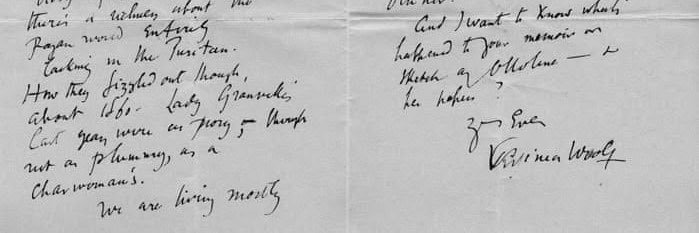 there's a richness about the
Pagan world entirely
lacking in the Puritan.
How they fizzled out though,
about 1860. Lady Granville's
last years were as prosy, though
not as plummy, as a
charwoman's.
We are living mostly
And I want to know what's
happened to your memoir or
sketch of Ottoline — &
her papers?
Yrs Ever
Virginia Woolf